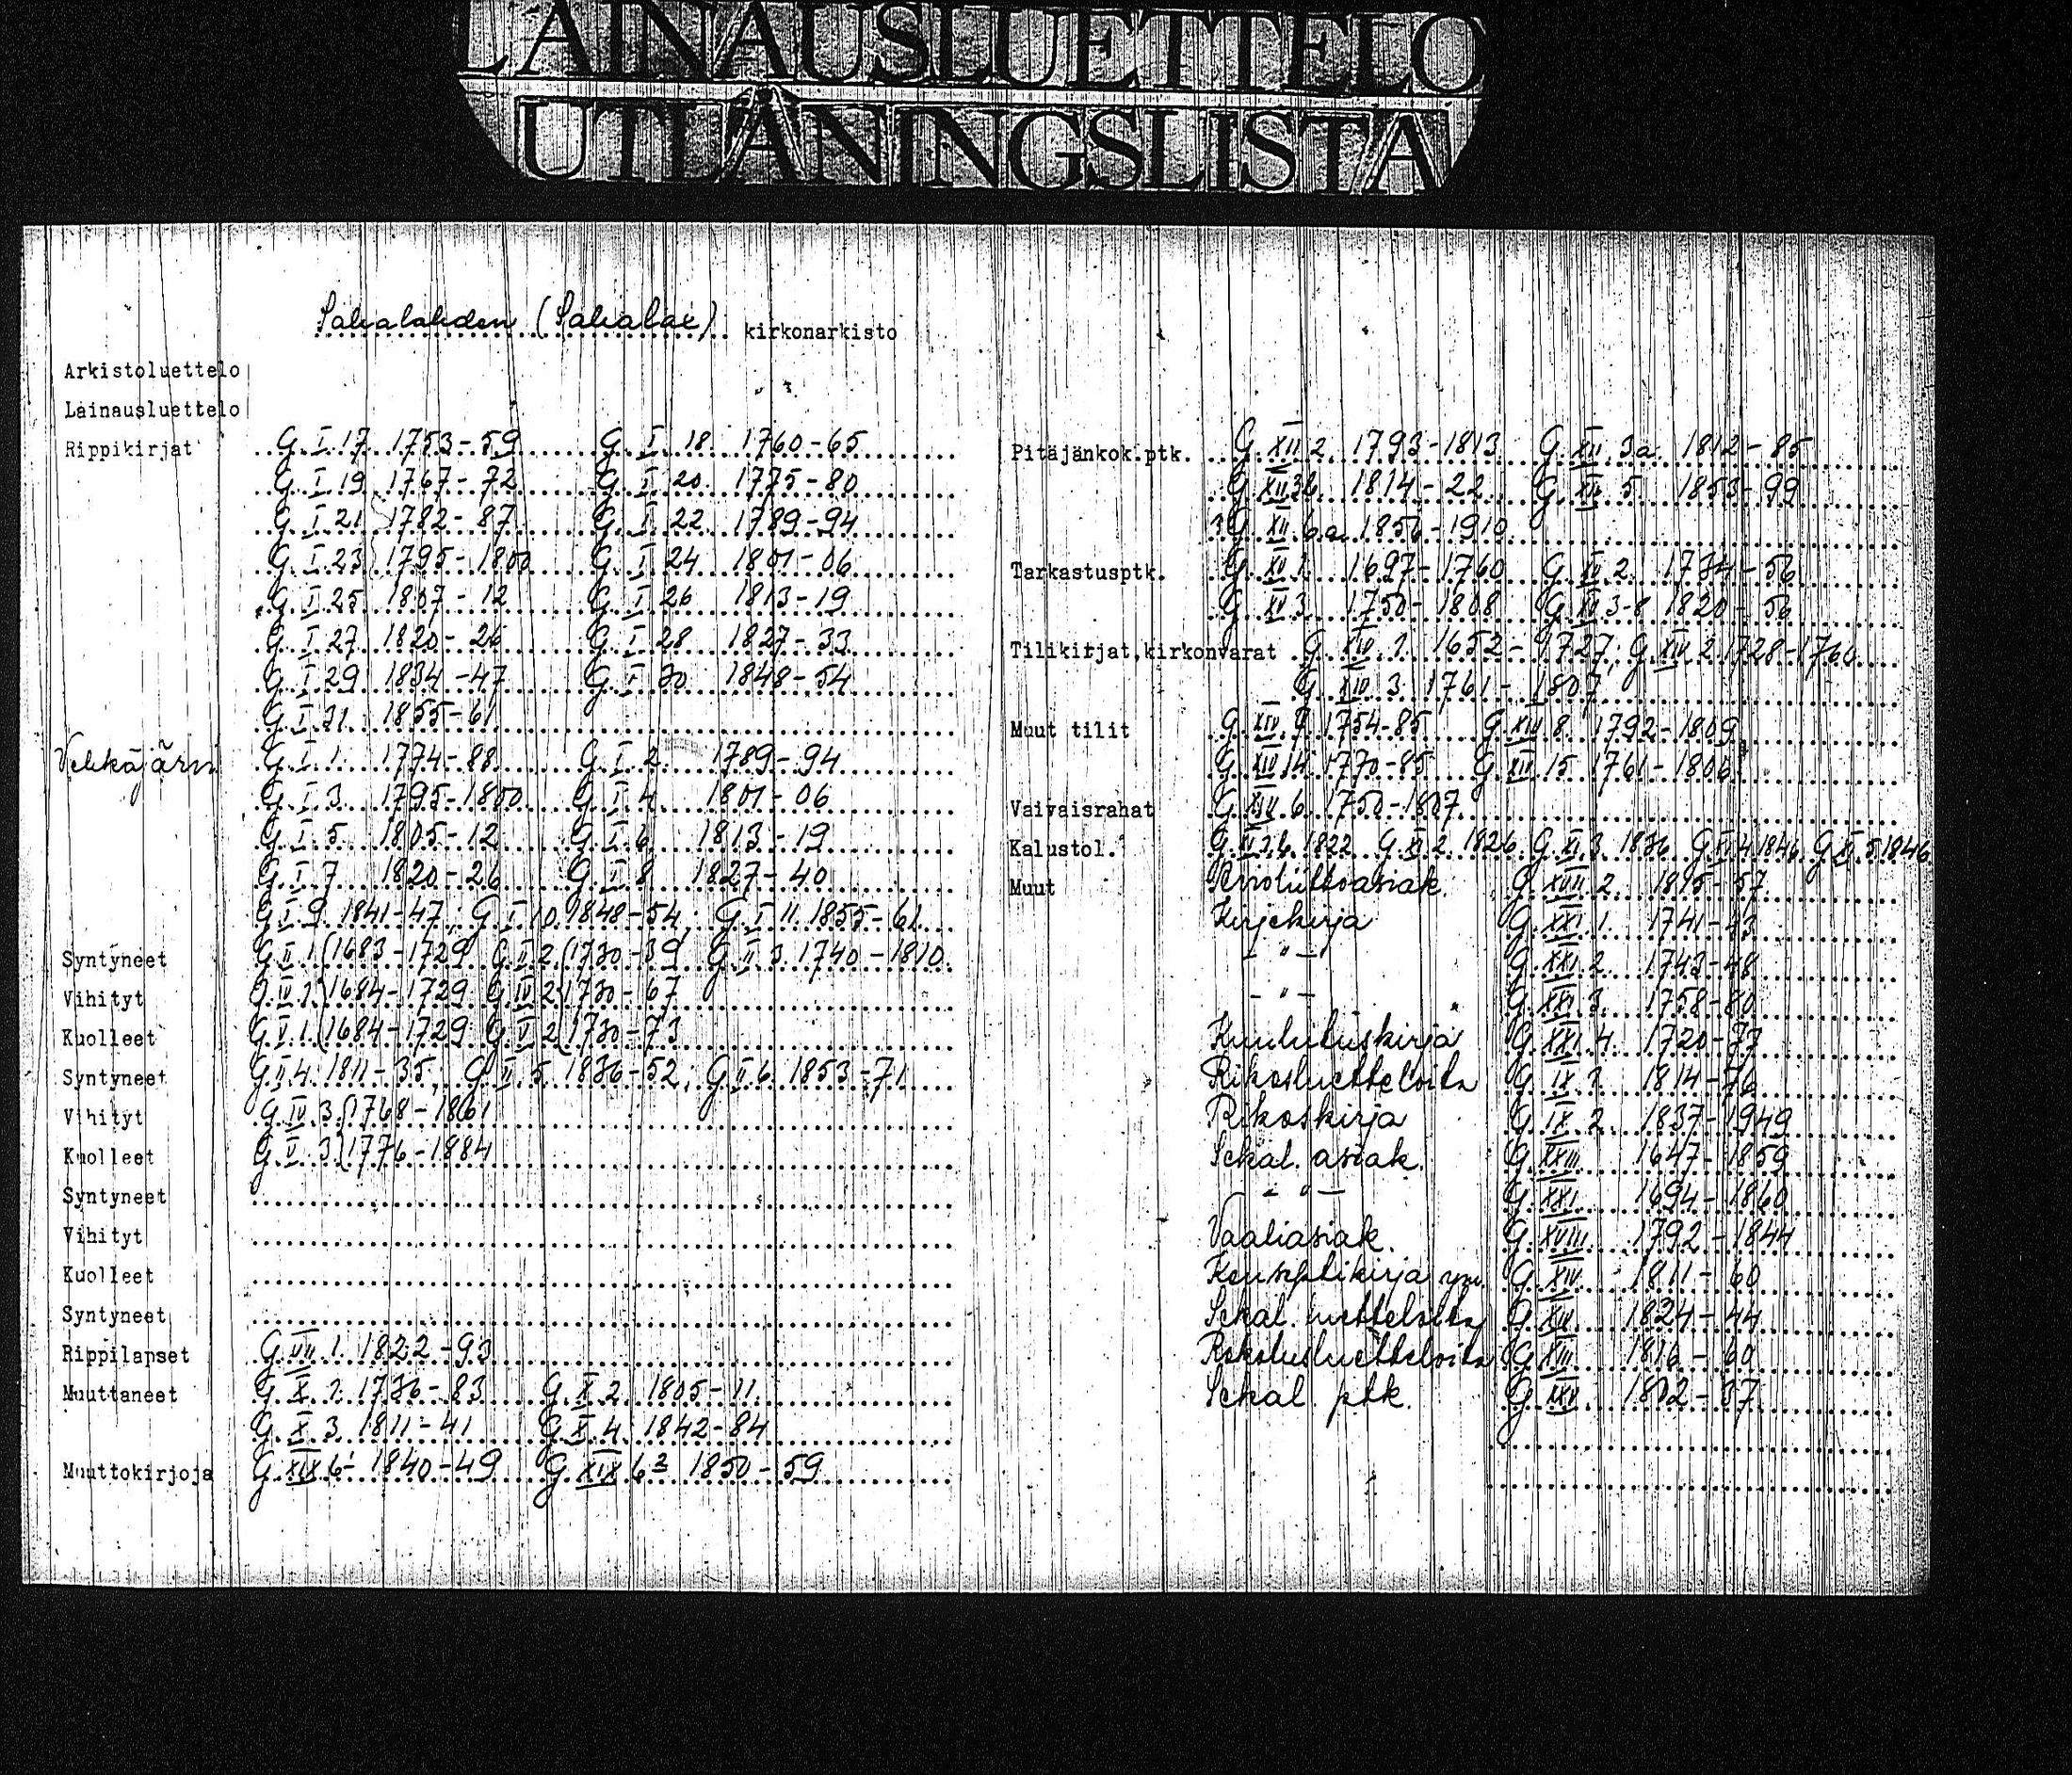 LAINAUSLUETTELO
UTLÅNINGSLISTA
Sahalahden (Sahalax) kirkonarkisto
Arkistoluettelo
Lainausluettelo
Rippikirjat G I 17 1753-59 G I 18 1760-65
G I 19 1767-72 G I 20 1775-80
G I 21 1782-87 G I 22 1789-94
G I 23 1795-1800 G I 24 1801-06
G I 25 1807-12 G I 26 1813-19
G I 27 1820-26 G I 28 1827-33
G I 29 1834-47 G I 30 1848-54
G I 31 1855-61
G I 1 1774-88 G I 2 1789-94
G I 3 1795-1800 G I 4 1801-06
G I 5 1805-12 G I 6 1813-19
G I 7 1820-26 G I 8 1827-40
G I 9 1841-47; G I 10 1848-54; G I 11 1855-61
Syntyneet G II 1 (1683-1729 G II 2 (1730-39 G II 3 1740-1810
Vihityt G IV 1 1684-1729 G IV 2 1730-67
Kuolleet G V 1 (1684-1729 G V 2 (1730-73
Syntyneet G II 4 1811-35; G II 5 1836-52; G II 6 1853-71
Vihityt G IV 3 1768-1861
Kuolleet G V 3 1776-1884
Syntyneet
Vihityt
Kuolleet
Syntyneet
Rippilapset G VII 1 1822-93
Muuttaneet G X 1 1736-83 G X 2 1805-11
G X 3 1811-41 G X 4 1842-84
Muuttokirjoja G XIX 6 1840-49 G XIX 6 1850-59
Pitäjänkok.ptk. G XII 2 1793-1813 G XII 3a 1812-85
G XII 3b 1814-22 G XII 5 1853-99
G XII 6a 1856-1910
Tarkastusptk. G XV 1 1697-1760 G XV 2 1734-56
G XV 3 1750-1808 1820-56
Tilikirjat,kirkonvarat G XIV 1 1652-1727; G XIV 2 1728-1760
G XIV 3 1761-1807
Muut tilit G XIV 7 1754-85 G XIV 8 1792-1809
G XIV 14 1770-85 G XIV 15 1761-1806
Vaivaisrahat G XIV 6 1750-1807
Kalustol. 1822 1826 1836 1846 1846
Muut G XVII 2
Kirjekirja G XXI 1 1741-43
- " - G XXI 2 1743-48
- " - G XXI 3 1758-80
Kuulutuskirja G XXI 4 1720-77
Rikosluetteloita G IX 1 1814-76
Rikoskirja G IX 2 1837-1949
Sekal. asiak. G XXIII 1647-1859
- " - G XXI 1694-1860
Vaaliasiak. G XVIII 1792-1844
Konseptikirja ym. G XIV 1811-60
Sekal. luetteloita 1824-44
Rokotusluetteloita G XIII 1816-60
Sekal. ptk. 1802-37